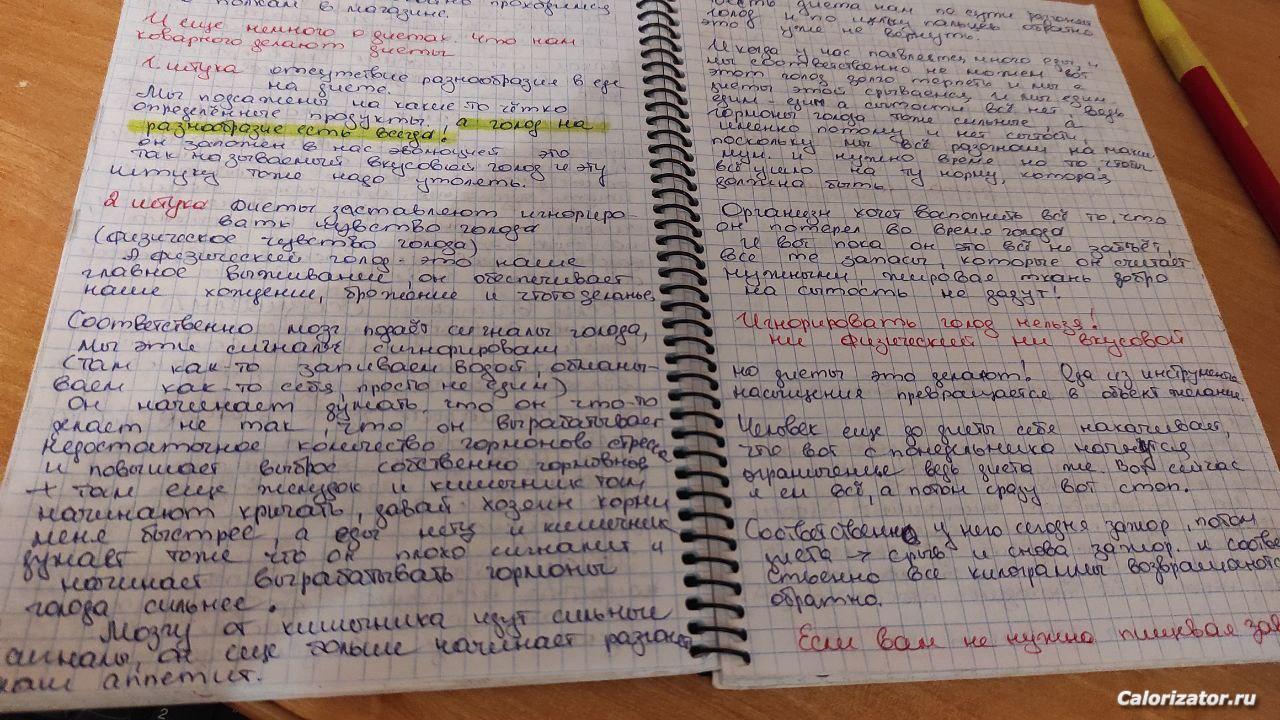 полкам в магазине.
И еще немного о диетах. что нам
коварного делают диеты
1. штука отсутствие разнообразия в еде
на диете.
Мы подсажены на какие-то чётко
определённые продукты. а голод на
разнообразие есть всегда!
он заложен в нас эволюцией это
так называемый вкусовой голод и эту
штуку тоже надо утолять.
2 штука диеты заставляют игнориро-
вать чувство голода
(физическое чувство голода)
А физический голод - это наше
главное выживание, он обеспечивает
наше хождение, брожение и чтотоделанье.
Соответственно мозг подаёт сигналы голода,
мы эти сигналы сигнорировали
(там как-то запиваем водой, обманы-
ваем как-то себя, просто не едим)
он начинает думать, что он что-то
делает не так что он вырабатывает
недостаточное количество гормонов стресса
и повышает выброс собственно гормонов
+ там еще желудок и кишечник тоже
начинают кричать, давай хозяин корми
меня быстрее, а еды нету и кишечник
думает тоже что он плохо сигналит и
начинает вырабатывать гормоны
голода сильнее.
Мозгу от кишечника идут сильные
сигналы, он еще больше начинает разгонять
наш аппетит.
диета нам по сути разгоняет
голод и по щелчку пальцев обратно
это уже не вернуть.
И когда у нас появляется много еды, и
мы соответственно не можем вот
этот голод долго терпеть и мы с
диеты этой срываемся и мы едим
едим - едим а сытости всё нет ведь
гормоны голода тоже сильные, а
именно потому и нет сытости
поскольку мы всё разогнали на макси
мум. и нужно время на то чтобы
всё ушло на ту норму, которая
должна быть
Организм хочет восполнить всё то, что
он потерял во время голода
и вот пока он это всё не заъест,
все те запасы, которые он считает
нужными жировая ткань добро
на сытость не дадут!
Игнорировать голод нельзя!
ни физический ни вкусовой
но диеты это делают! Еда из инструмента
насыщения превращается в объект желания.
Человек еще до диеты себя накачивает,
что вот с понедельника начнётся
ограничение ведь диета же вот сейчас
я ем всё, а потом сразу вот стоп.
Соответственно у него сегодня зажор, потом
диета → срыв и снова зажор. и соотве
ственно все килограммы возвращаются
обратно.
Если вам не нужна пищевая зав
Calorizator.ru